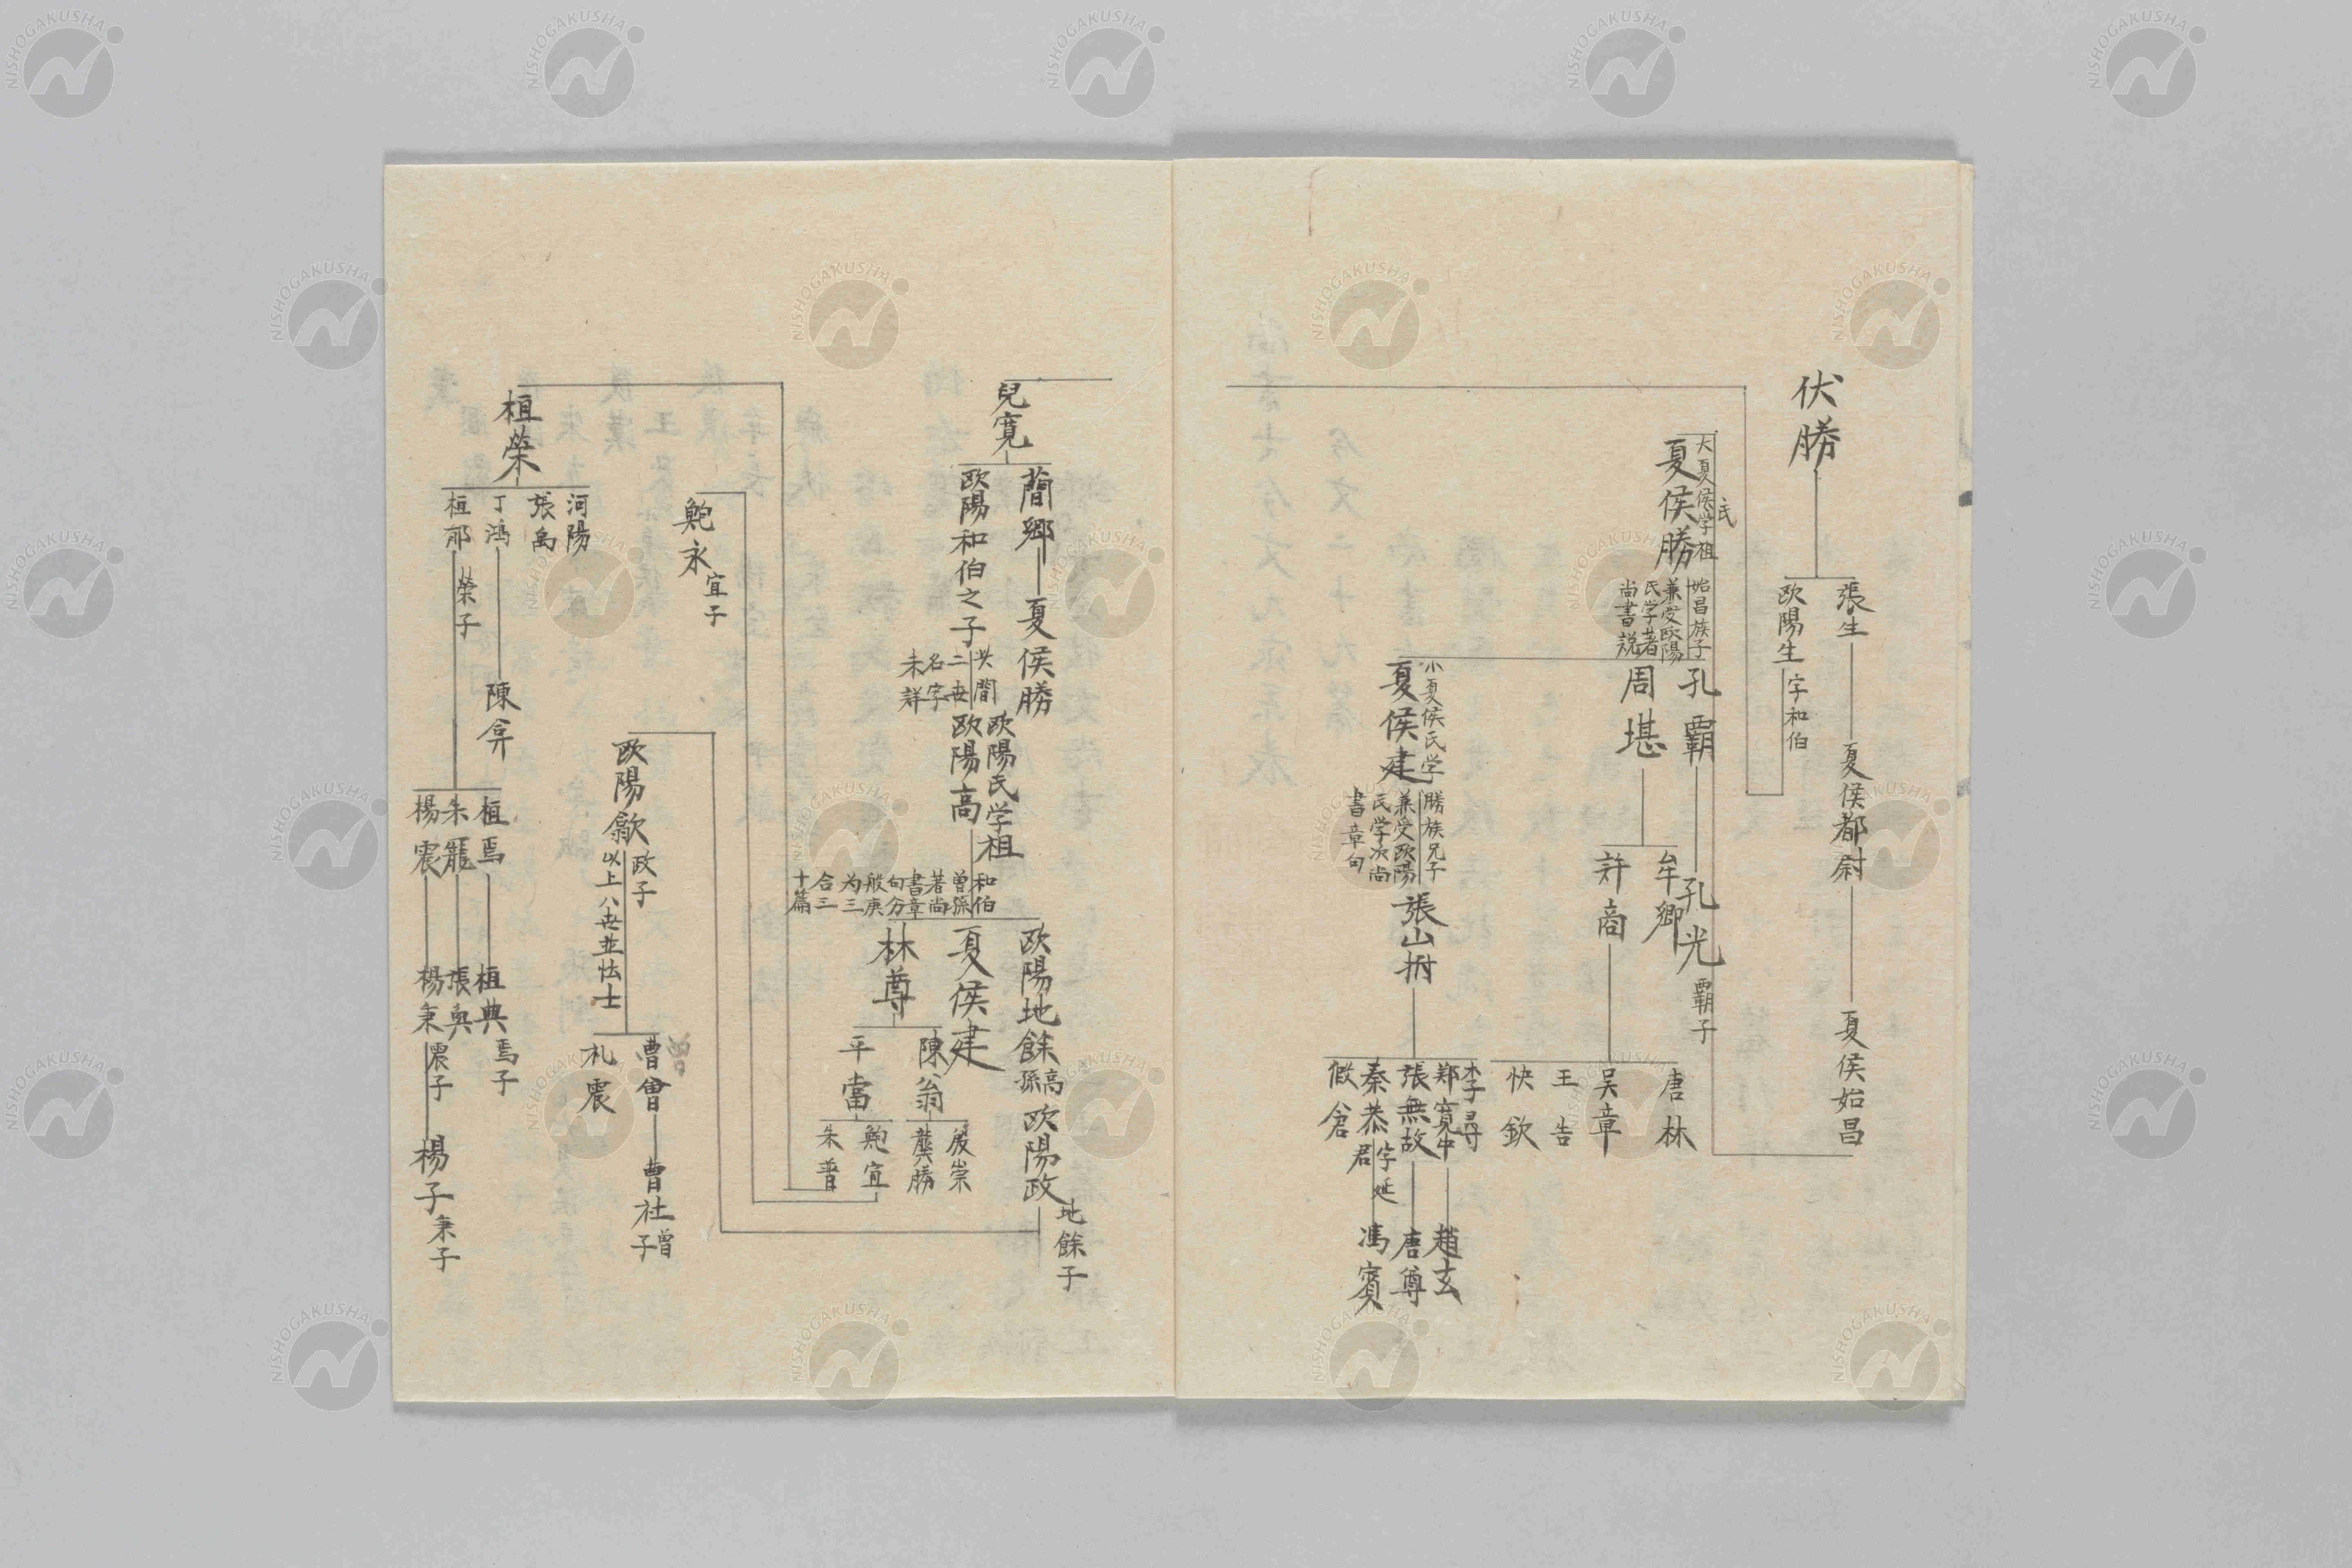 伏勝
張生
夏侯都尉
夏侯始昌
欧陽生
字和伯
大夏侯氏学祖
夏侯勝
始昌族子
兼受欧陽
氏学著
尚書説
孔霸
孔光
霸子
周堪
牟卿
許商
唐林
吴章
王吉
快欽
小夏侯氏学
夏侯建
勝族兄子
兼受欧陽
氏学次尚
書章句
張山拊
李尋
郑寛中
趙玄
張無故
唐尊
秦恭
字延
君
馮賓
假倉
兒寛
蕳卿
夏侯勝
欧陽和伯之子
其間
二世
名字
未詳
欧陽氏学祖
欧陽高
和伯
曽孫
著尚
書章
句分
般庚
为三
合三
十篇
欧陽地餘
高
孫
欧陽政
地餘子
夏侯建
林尊
陳翁
殷崇
龔勝
平當
鮑宜
朱普
鮑永
宜子
欧陽歙
政子
以上八世並博士
曹曾
曹社
曽
子
札震
桓荣
河陽
張禹
丁鴻
陳弇
桓郁
榮子
桓焉
桓典
焉子
朱寵
張奐
楊震
楊秉
震子
楊子
秉子
NISHOGAKUSHA